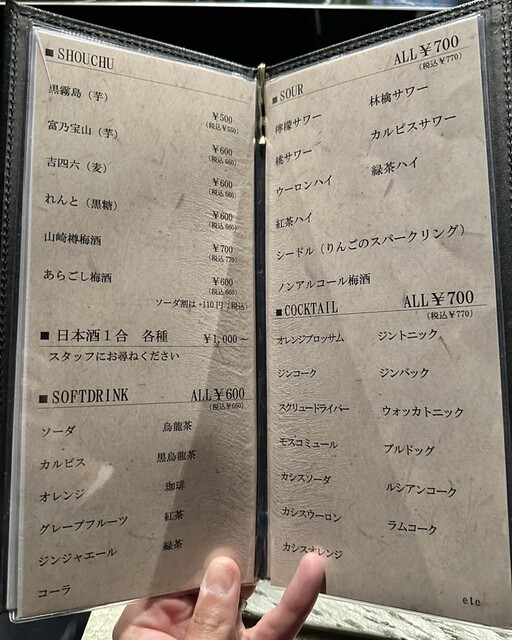 ■ SHOUCHU
黒霧島（芋）
¥500
(税込¥550)
富乃宝山（芋）
¥600
(税込660)
吉四六（麦）
¥600
(税込660)
れんと（黒糖）
¥600
(税込660)
山崎樽梅酒
¥700
(税込770)
あらごし梅酒
¥600
(税込660)
ソーダ割は+110円（税込）
■ 日本酒１合 各種 ¥1,000～
スタッフにお尋ねください
■ SOFTDRINK ALL¥600
(税込¥660)
ソーダ 烏龍茶
カルピス 黒烏龍茶
オレンジ 珈琲
グレープフルーツ 紅茶
ジンジャエール 緑茶
コーラ
■ SOUR ALL¥700
(税込¥770)
檸檬サワー 林檎サワー
桃サワー カルピスサワー
ウーロンハイ 緑茶ハイ
紅茶ハイ
シードル（りんごのスパークリング）
ノンアルコール梅酒
■ COCKTAIL ALL¥700
(税込¥770)
オレンジブロッサム ジントニック
ジンコーク ジンバック
スクリュードライバー ウォッカトニック
モスコミュール ブルドッグ
カシスソーダ ルシアンコーク
カシスウーロン ラムコーク
カシスオレンジ
etc